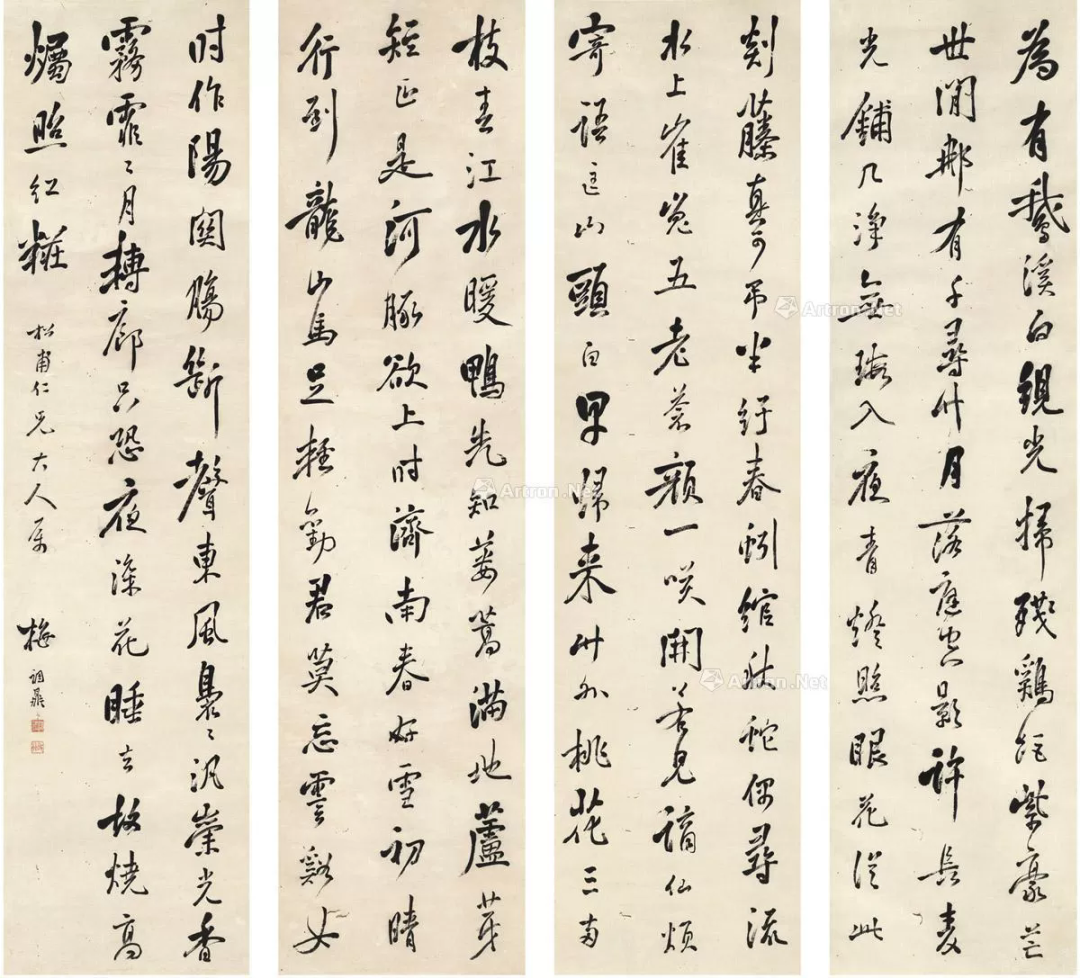 為有鵝溪白絸光掃殘鷄距紫豪芒
世間那有千尋竹月落庭空影許長麦
光鋪几淨無瑕入夜青燈照眼花從此
剡藤真可吊半紆春蚓綰秋蛇偶尋流
水上崔嵬五老蒼顏一咲開若見謫仙煩
寄語匡山頭白早歸来竹外桃花三兩
枝春江水暖鴨先知蔞蒿滿地蘆芽
短正是河豚欲上时濟南春好雪初晴
行到龍山馬足輕勸君莫忘霅谿女
时作陽關腸斷聲東風裊〻汎崇光香
霧霏〻月轉廊只恐夜深花睡去故燒高
燭照紅粧
松甫仁兄大人属
梅調鼎
Artron.Net
Artron.Net
Artron.Net